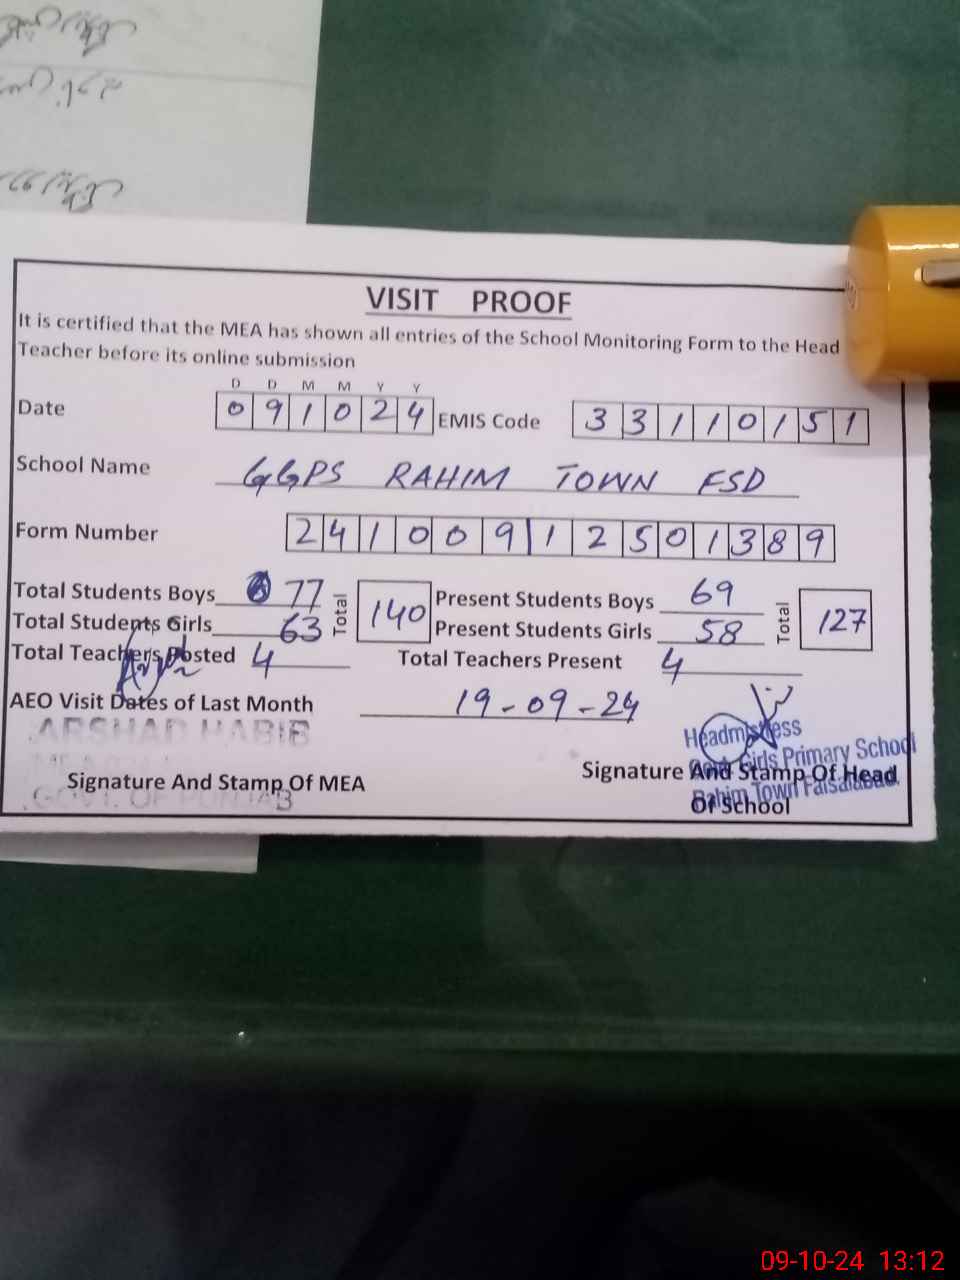 VISIT PROOF
It is certified that the MEA has shown all entries of the School Monitoring Form to the Head
Teacher before its online submission
D D M M Y Y
Date 0 9 1 0 2 4 EMIS Code 3 3 1 1 0 1 5 1
School Name GGPS RAHIM TOWN FSD
Form Number 2 4 1 0 0 9 1 2 5 0 1 3 8 9
Total Students Boys 77 Total 140 Present Students Boys 69 Total 127
Total Students Girls 63 Present Students Girls 58
Total Teachers Posted 4 Total Teachers Present 4
AEO Visit Dates of Last Month 19-09-24
ARSHAD HABIB
Headmistress
Govt Girls Primary School
Rahim Town Faisalabad.
Signature And Stamp Of MEA
GOVT. OF PUNJAB
Signature And Stamp Of Head
Of School
09-10-24 13:12